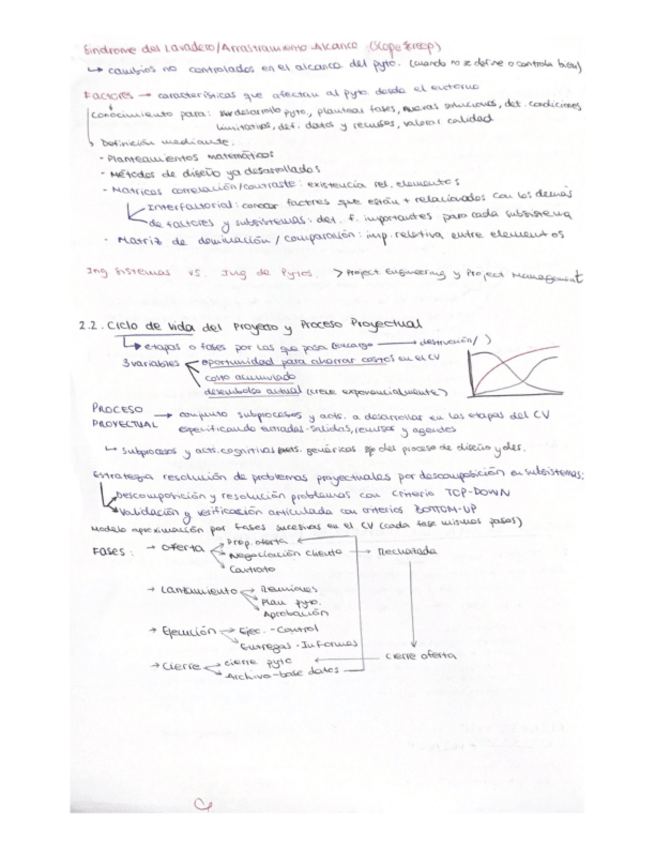 Síndrome del Lavadero/Arrastramiento Alcance (Scope Creep)
↳ cambios no controlados en el alcance del pyto. (cuando no se define o controla bien)
Factores → características que afectan al pyto desde el entorno
Conocimiento para: desarrollo pyto, plantear fases, nuevas soluciones, det. condiciones
limitativas, def. datos y recursos, valorar calidad
Definición mediante:
- Planteamientos matemáticos
- Métodos de diseño ya desarrollados
- Matrices correlación/contraste: existencia rel. elementos
Interfactorial: conocer factores que están + relacionados con los demás
de factores y subsistemas: det. f. importantes para cada subsistema
- Matriz de dominación / comparación: imp. relativa entre elementos
Ing Sistemas vs. Ing de Pytos. > Project Engineering y Project Management
2.2. Ciclo de vida del Proyecto y Proceso Proyectual
↳ etapas o fases por las que pasa (encargo → destrucción/ )
3 variables oportunidad para ahorrar costes en el CV
coste acumulado
desembolso actual (crece exponencialmente)
PROCESO PROYECTUAL → conjunto subprocesos y acts. a desarrollar en las etapas del CV
especificando entradas-salidas, recursos y agentes
↳ subprocesos y acts. cognitivas genéricas del proceso de diseño y des.
Estrategia resolución de problemas proyectuales por descomposición en subsistemas:
Descomposición y resolución problemas con criterio TOP-DOWN
Validación y verificación articulada con criterios BOTTOM-UP
Modelo aproximación por fases sucesivas en el CV (cada fase mismos pasos)
Fases: → Oferta Prep. oferta
Negociación cliente → Rechazada
Contrato
→ Lanzamiento Reuniones
Plan pyto.
Aprobación
→ Ejecución Ejec. - Control
Entregas - Informes
→ Cierre cierre pyto Cierre oferta
Archivo-base datos